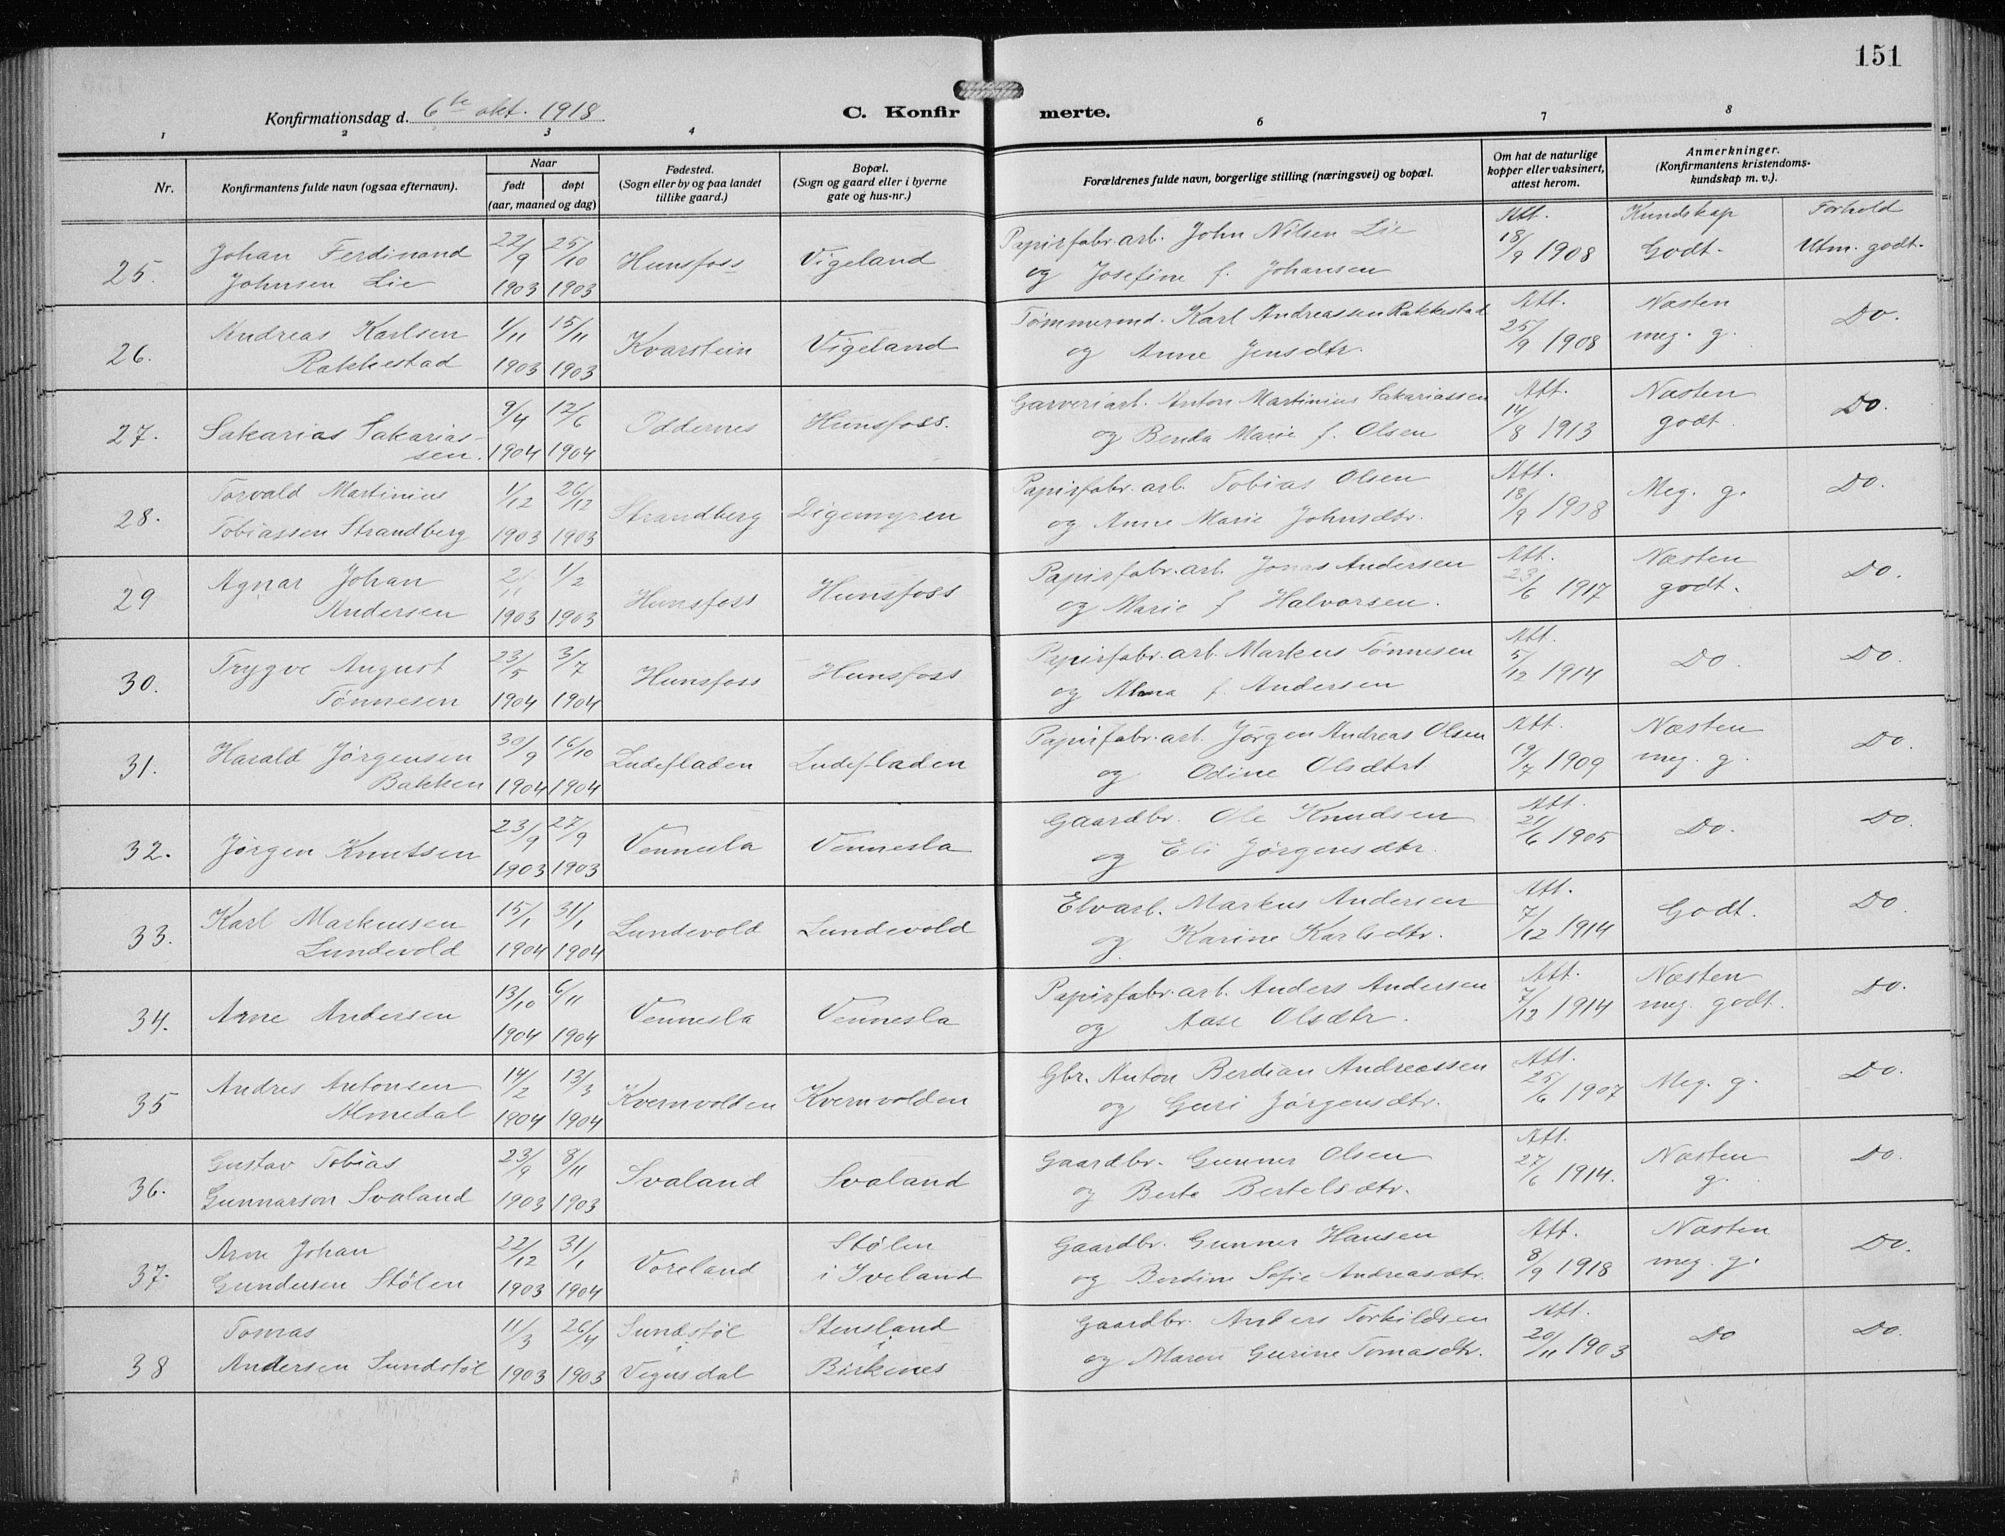 151
Konfirmationsdag d. 6te okt. 1918
C. Konfirmerte.
1 2 3 4 5 6 7 8
Nr.
Konfirmantens fulde navn (ogsaa efternavn).
Naar
født døpt
(aar, maaned og dag)
Fødested.
(Sogn eller by og paa landet
tillike gaard.)
Bopæl.
(Sogn og gaard eller i byerne
gate og hus-nr.)
Forældrenes fulde navn, borgerlige stilling (næringsvei) og bopæl.
Om hat de naturlige
kopper eller vaksinert,
attest herom.
Anmerkninger.
(Konfirmantens kristendoms-
kundskap m. v.).
Kundskap Forhold
25. Johan Ferdinand Johnsen Lie 22/9 1903 25/10 1903 Hunsfoss Vigeland
Papirfabr. arb. John Nilsen Lie
og Josefine f. Johansen
Att. 18/9 1908 Godt. Utm. godt.
26. Andreas Karlsen Rakkestad 1/11 1903 15/11 1903 Kvarstein Vigeland
Tømmermd. Karl Andreassen Rakkestad
og Anne Jensdtr.
Att. 25/9 1908 Næsten meg. g. Do.
27. Sakarias Sakariassen. 9/4 1904 12/6 1904 Oddernes Hunsfoss.
Garveriarb. Anton Martinius Sakariassen
og Benda Marie f. Olsen
Att. 14/8 1913 Næsten godt. Do.
28. Torvald Martinius Tobiassen Strandberg 1/12 1903 26/12 1903 Strandberg Digemyren
Papirfabr. arb. Tobias Olsen
og Anne Marie Johnsdtr.
Att. 18/9 1908 Meg. g. Do.
29 Agnar Johan Andersen 2/11 1903 1/2 1903 Hunsfoss Hunsfoss
Papirfabr. arb. Jonas Andersen
og Marie f Halvorsen.
Att. 23/6 1917 Næsten godt. Do.
30. Trygve August Tønnesen 23/5 1904 3/7 1904 Hunsfoss Hunsfoss
Papirfabr. arb. Markus Tønnesen
og Alma f. Andersen
Att. 5/12 1914 Do. Do.
31. Harald Jørgensen Bakken 30/9 1904 16/10 1904 Ludefladen Ludefladen
Papirfabr. arb. Jørgen Andreas Olsen
og Odine Olsdtr
Att. 19/7 1909 Næsten meg. g. Do.
32. Jørgen Knutsen 23/9 1903 27/9 1903 Vennesla Vennesla
Gaardbr. Ole Knudsen
og Eli Jørgensdtr.
Att. 21/6 1905 Do. Do.
33. Karl Markussen Lundevold 15/1 1904 31/1 1904 Lundevold Lundevold
Elvarb. Markus Andersen
og Karine Karlsdtr.
Att. 7/12 1914 Godt. Do.
34. Arne Andersen 13/10 1904 6/11 1904 Vennesla Vennesla
Papirfabr. arb. Anders Andersen
og Aase Olsdtr.
Att. 7/12 1914 Næsten meg. godt. Do.
35 Andres Antonsen Almedal 14/2 1904 13/3 1904 Kvernvolden Kvernvolden
Gbr. Anton Berdian Andreassen
og Guri Jørgensdtr.
Att. 25/6 1907 Meg. g. Do.
36. Gustav Tobias Gunnarson Svaland 23/9 1903 8/11 1903 Svaland Svaland
Gaardbr. Gunner Olsen
og Berte Bertelsdtr.
Att. 27/6 1914. Næsten g. Do.
37. Arne Johan Gundersen Stølen 22/12 1903 31/1 1904 Voreland Stølen i Iveland
Gaardbr. Gunner Hansen
og Berdine Sofie Andreasdtr.
Att. 8/9 1918 Næsten meg. g. Do.
38 Tomas Andersen Sundstøl 11/3 1903 26/4 1903 Sundstøl i Vegusdal Stensland i Birkenes
Gaardbr. Anders Torkildsen
og Maren Gurine Tomasdtr.
Att. 20/11 1903 Do Do.